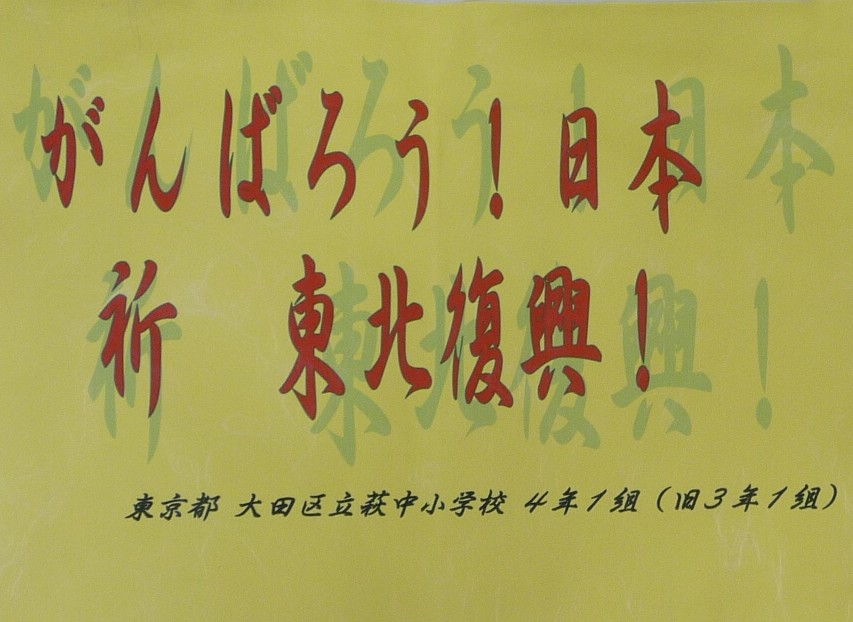 がんばろう！日本
祈　東北復興！
東京都 大田区立萩中小学校 4年1組（旧3年1組）